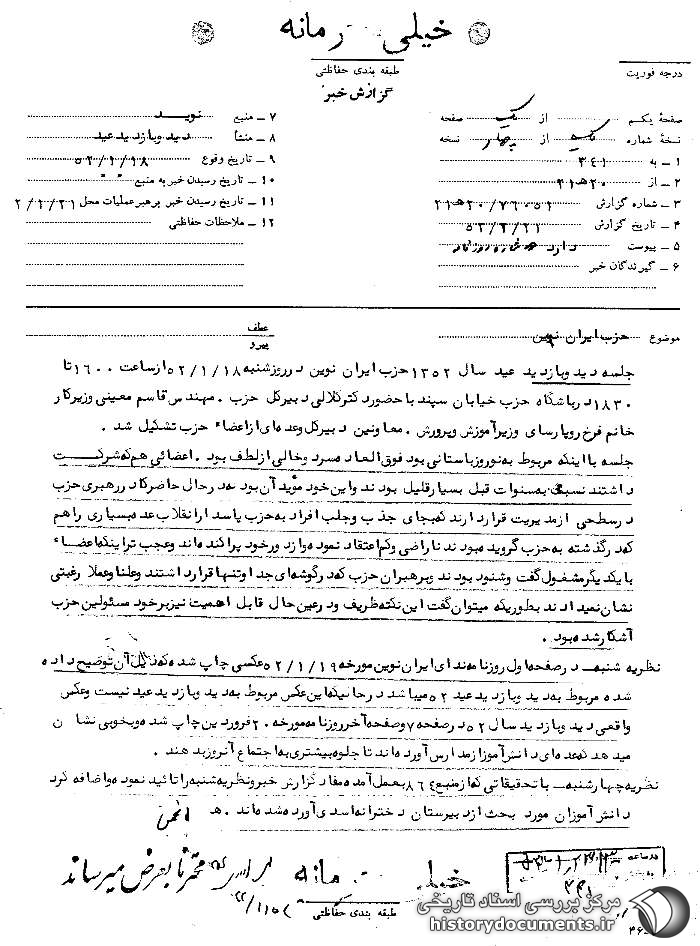 خیلی محرمانه
طبقه بندی حفاظتی
گزارش خبر
درجه فوریت
صفحهٔ یکم از یک صفحه
نسخهٔ شماره یک از چهار نسخه
۱ ـ به ۳۴۱
۲ ـ از ۲۰هـ۲۱
۳ ـ شماره گزارش ۲۰/۷۶۰۵۱هـ۲۱
۴ ـ تاریخ گزارش ۵۲/۲/۲۱
۵ ـ پیوست دارد
۶ ـ گیرندگان خبر
۷ ـ منبع نوید
۸ ـ منشأ دید و بازدید عید
۹ ـ تاریخ وقوع ۵۲/۱/۱۸
۱۰ ـ تاریخ رسیدن خبر به منبع
۱۱ ـ تاریخ رسیدن خبر برهبر عملیات محل ۲/۲/۲۱
۱۲ ـ ملاحظات حفاظتی
موضوع حزب ایران نوین
عطف
پیرو
جلسه دید و بازدید عید سال ۱۳۵۲ حزب ایران نوین در روز شنبه ۵۲/۱/۱۸ از ساعت ۱۶۰۰ تا
۱۸۳۰ در باشگاه حزب خیابان سپند با حضور دکتر کلالی دبیرکل حزب . مهندس قاسم معینی وزیر کار
خانم فرخ رو پارسای وزیر آموزش و پرورش . معاونین دبیرکل و عده ای از اعضاء حزب تشکیل شد .
جلسه با اینکه مربوط به نوروز باستانی بود فوق العاده سرد و خالی از لطف بود . اعضائی هم که شرکت
داشتند نسبت به سنوات قبل بسیار قلیل بودند و این خود مؤید آن بود که در حال حاضر کادر رهبری حزب
در سطحی از مدیریت قرار دارند که بجای جذب و جلب افراد به حزب پاسدار انقلاب عده بسیاری را هم
که در گذشته به حزب گرویده بودند ناراضی و کم اعتقاد نموده و از دور خود پراکنده اند و عجب تر اینکه اعضاء
با یکدیگر مشغول گفت و شنود بودند و رهبران حزب که در گوشه ای جدا و تنها قرار داشتند و علنا و عملا رغبتی
نشان نمیدادند بطوریکه میتوان گفت این نکته ظریف و در عین حال قابل اهمیت نیز بر خود مسئولین حزب
آشکار شده بود .
نظریه شنبه ـ در صفحه اول روزنامه ندای ایران نوین مورخه ۵۲/۱/۱۹ عکسی چاپ شده که ذیل آن توضیح داده
شده مربوط به دید و بازدید عید ۵۲ میباشد در حالیکه این عکس مربوط به دید و بازدید عید نیست و عکس
واقعی دید و بازدید سال ۵۲ در صفحه ۷ و صفحه آخر روزنامه مورخه ۲۰ فروردین چاپ شده و بخوبی نشان
میدهد که عده ای دانش آموز از مدارس آورده اند تا جلوه بیشتری به اجتماع آنروز بدهند .
نظریه چهارشنبه ـ با تحقیقاتی که از منبع ۸۶۴ بعمل آمده مفاد گزارش خبر و نظریه شنبه را تائید نموده و اضافه کرد
دانش آموزان مورد بحث از دبیرستان دخترانه اسدی آورده شده اند . هـ
خیلی محرمانه
طبقه بندی حفاظتی
محترماً بعرض میرساند
مرکز بررسی اسناد تاریخی
historydocuments.ir